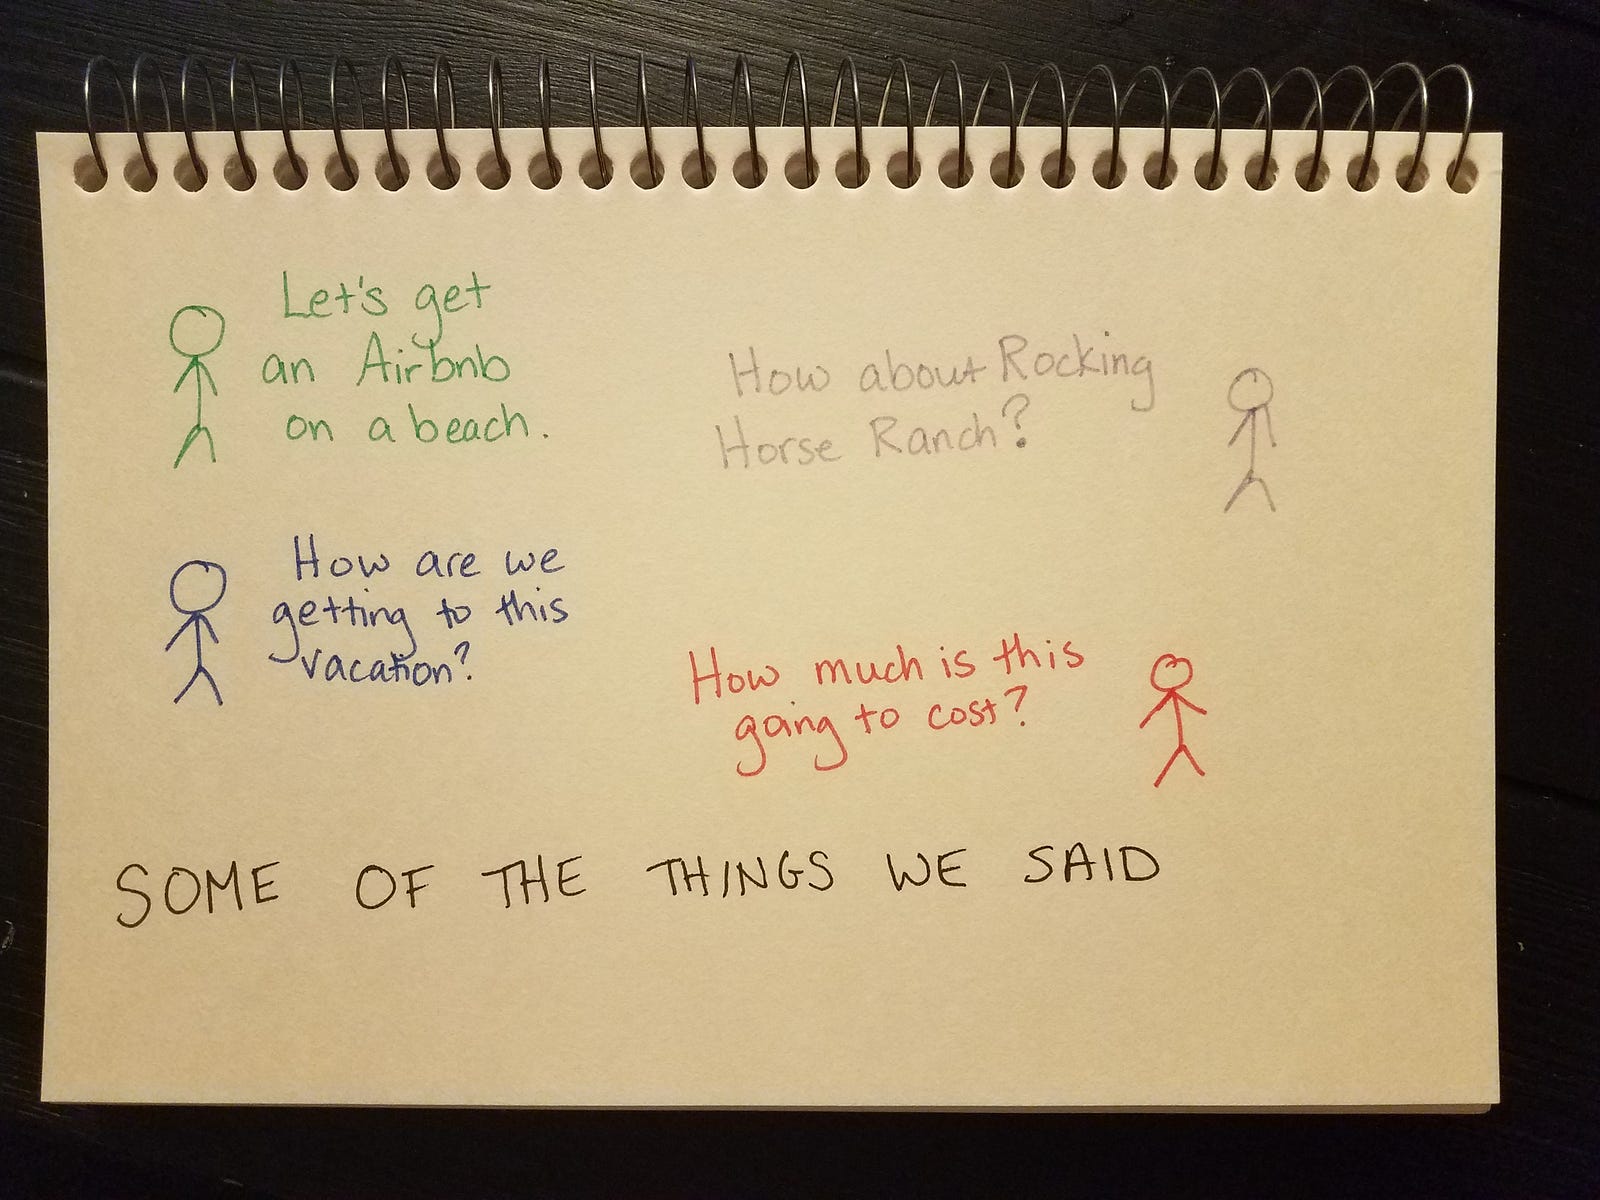 Let's get
an Airbnb
on a beach.
How about Rocking
Horse Ranch?
How are we
getting to this
vacation?
How much is this
going to cost?
SOME OF THE THINGS WE SAID